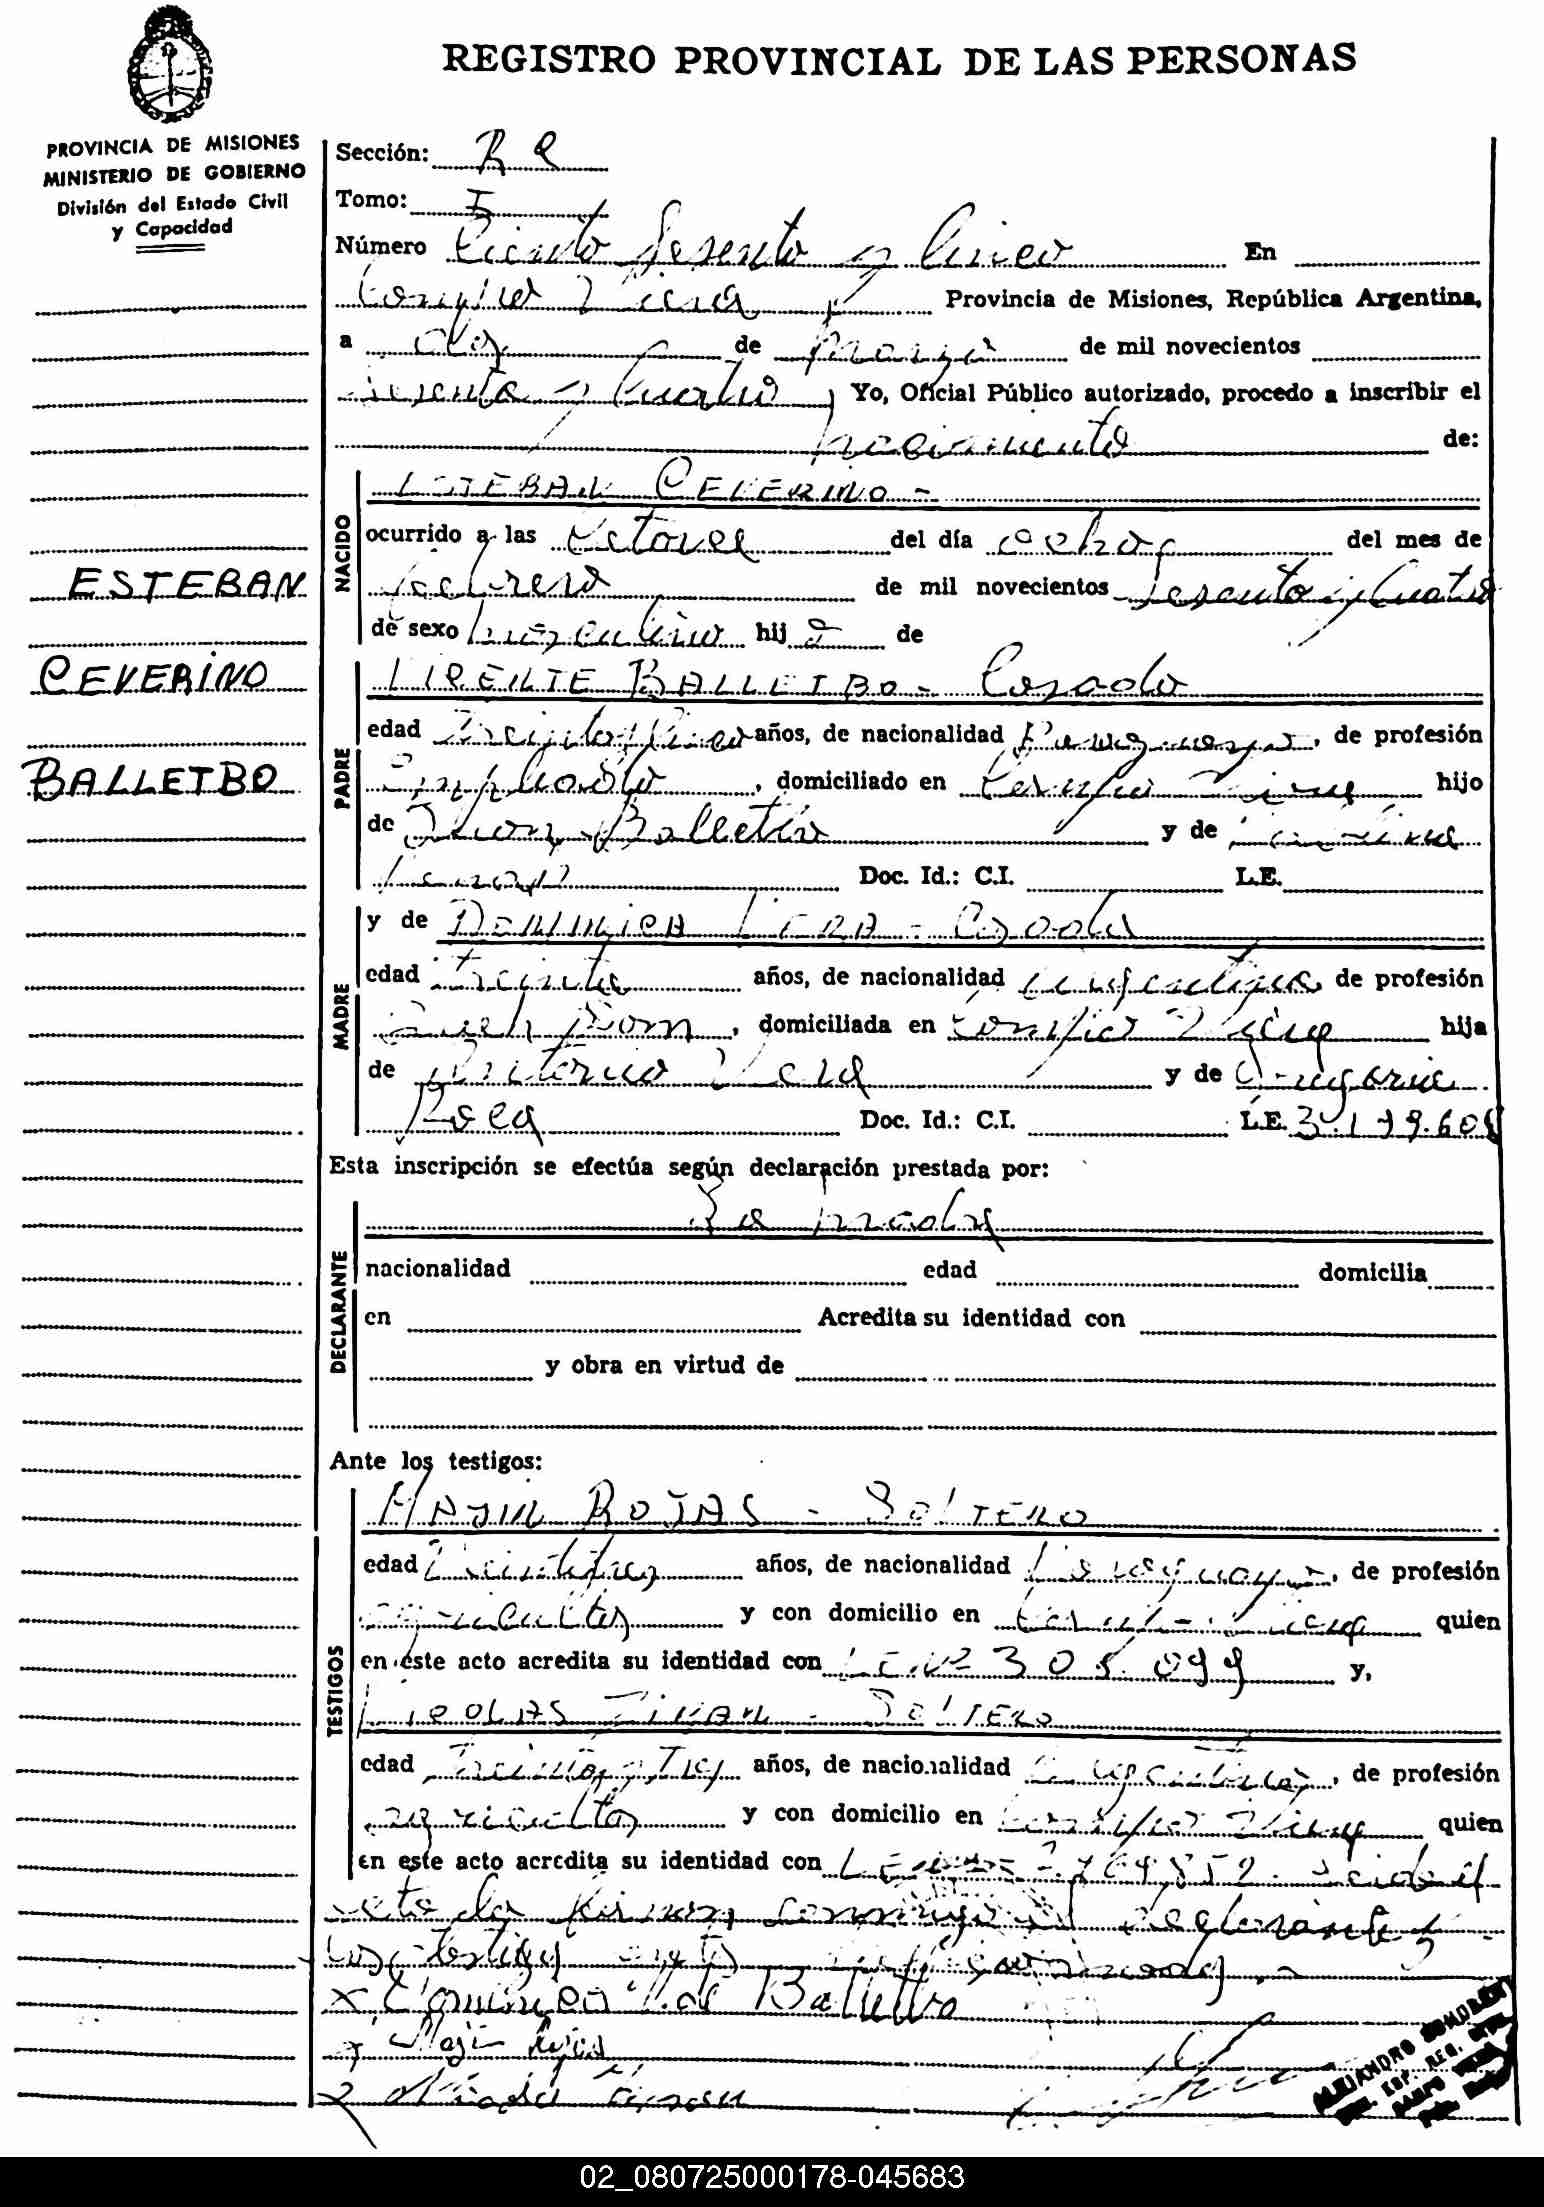 REGISTRO PROVINCIAL DE LAS PERSONAS
PROVINCIA DE MISIONES
MINISTERIO DE GOBIERNO
División del Estado Civil
y Capacidad
ESTEBAN
CEVERINO
BALLETBO
Sección:
Tomo: I
Número Ciento Sesenta y Cinco En
Campo Viera Provincia de Misiones, República Argentina,
a dos de Marzo de mil novecientos
Sesenta y Cuatro Yo, Oficial Público autorizado, procedo a inscribir el
nacimiento de:
NACIDO
ESTEBAN CEVERINO -
ocurrido a las catorce del día ocho del mes de
febrero de mil novecientos Sesenta y Cuatro
de sexo masculino hijo de
PADRE
VICENTE BALLETBO - Casado
edad Treinta y Cinco años, de nacionalidad Paraguayo, de profesión
Empleado, domiciliado en Campo Viera hijo
de Juan Balletbo y de
Doc. Id.: C.I. L.E.
MADRE
y de DOMINICA VERA - Casada
edad Treinta años, de nacionalidad argentina, de profesión
Queh Dom, domiciliada en Campo Viera hija
de Antonio Vera y de
Roca Doc. Id.: C.I. L.E. 3.179.608
Esta inscripción se efectúa según declaración prestada por:
DECLARANTE
La madre
nacionalidad edad domicilia
en Acredita su identidad con
y obra en virtud de
Ante los testigos:
TESTIGOS
MAJIN ROJAS - SOLTERO
edad años, de nacionalidad Paraguayo, de profesión
agricultor y con domicilio en Campo Viera quien
en este acto acredita su identidad con Nº 305.099 y,
NICOLAS - SOLTERO
edad Treinta y Tres años, de nacionalidad argentino, de profesión
agricultor y con domicilio en Campo Viera quien
en este acto acredita su identidad con L.E. 769.852. Leida el
acta la firman conmigo el declarante y
los testigos
x Dominica V. de Balletbo
x Maji Rojas
x
ALEJANDRO
02_080725000178-045683